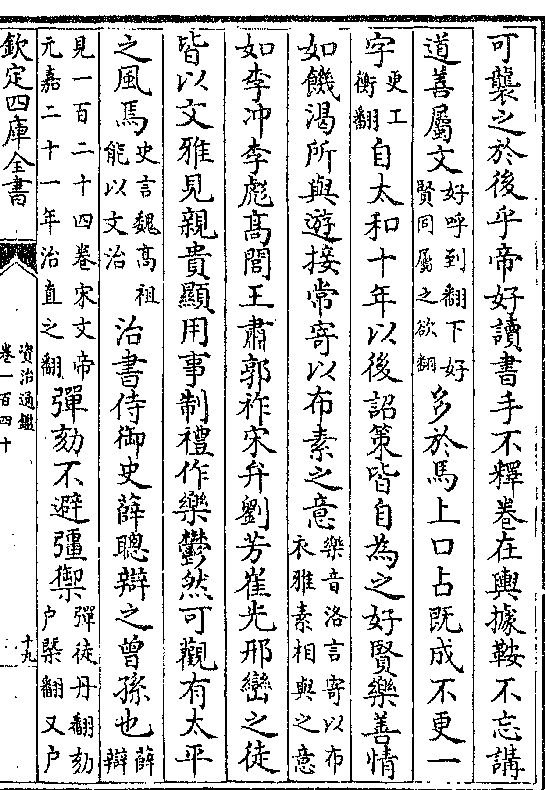 可襲之於後乎帝好讀書手不釋卷在輿據鞍不忘講
道善屬文好呼到翻下好賢同屬之欲翻多於馬上口占既成不更一
字更工衡翻自太和十年以後詔策皆自為之好賢樂善情
如饑渴所與遊接常寄以布素之意樂音洛言寄以布衣雅素相與之意
如李冲李彪髙閭王肅郭祚宋弁劉芳崔光邢巒之徒
皆以文雅見親貴顯用事制禮作樂鬱然可觀有太平
之風焉史言魏髙祖能以文治治書侍御史薛聰辯之曾孫也薛辯
見一百二十四卷宋文帝元嘉二十一年治直之翻彈劾不避彊禦彈徒丹翻劾户槩翻又户
欽定四庫全書
資治通鑑
卷一百四十
十九